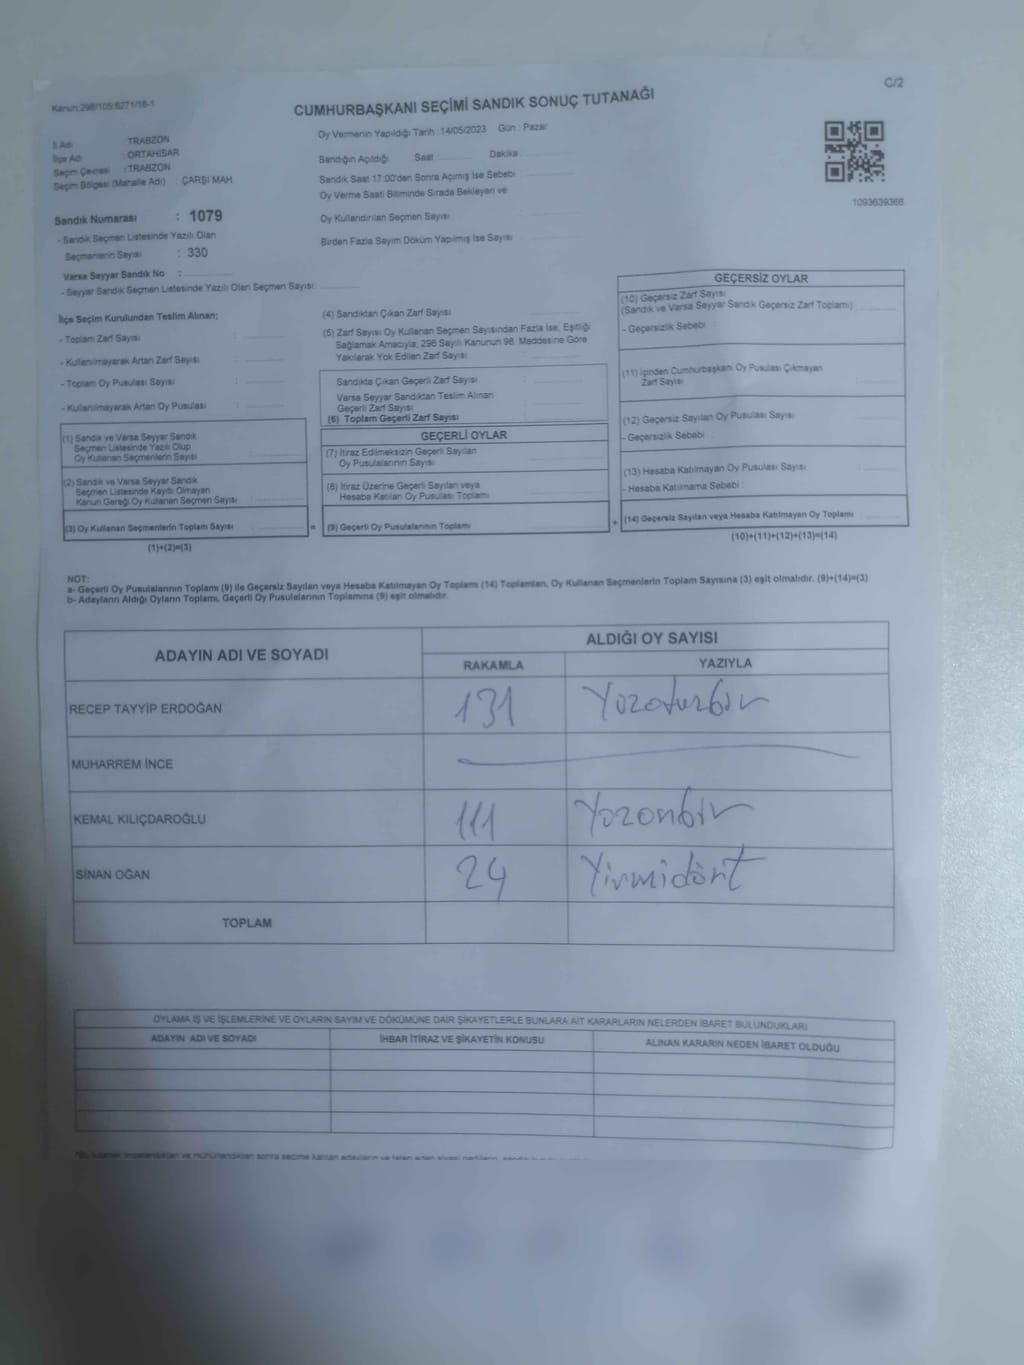 C/2
Kanun:298/105;6271/16-1
CUMHURBAŞKANI SEÇİMİ SANDIK SONUÇ TUTANAĞI
İl Adı : TRABZON
İlçe Adı : ORTAHİSAR
Seçim Çevresi : TRABZON
Seçim Bölgesi (Mahalle Adı) : ÇARŞI MAH.
Sandık Numarası : 1079
- Sandık Seçmen Listesinde Yazılı Olan
Seçmenlerin Sayısı : 330
Varsa Seyyar Sandık No :
- Seyyar Sandık Seçmen Listesinde Yazılı Olan Seçmen Sayısı:
Oy Vermenin Yapıldığı Tarih :14/05/2023 Gün : Pazar
Sandığın Açıldığı Saat Dakika
Sandık Saat 17:00'den Sonra Açımış İse Sebebi
Oy Verme Saati Bitiminde Sırada Bekleyen ve
Oy Kullandırılan Seçmen Sayısı
Birden Fazla Sayım Döküm Yapılmış İse Sayısı
1093639366
İlçe Seçim Kurulundan Teslim Alınan;
- Toplam Zarf Sayısı :
- Kullanılmayarak Artan Zarf Sayısı :
- Toplam Oy Pusulası Sayısı :
- Kullanılmayarak Artan Oy Pusulası :
(1) Sandık ve Varsa Seyyar Sandık
Seçmen Listesinde Yazılı Olup
Oy Kullanan Seçmenlerin Sayısı
(2) Sandık ve Varsa Seyyar Sandık
Seçmen Listesinde Kayıtlı Olmayan
Kanun Gereği Oy Kullanan Seçmen Sayısı
(3) Oy Kullanan Seçmenlerin Toplam Sayısı
(1)+(2)=(3)
(4) Sandıktan Çıkan Zarf Sayısı
(5) Zarf Sayısı Oy Kullanan Seçmen Sayısından Fazla İse, Eşitliği
Sağlamak Amacıyla; 298 Sayılı Kanunun 98. Maddesine Göre
Yakılarak Yok Edilen Zarf Sayısı
Sandıkta Çıkan Geçerli Zarf Sayısı :
Varsa Seyyar Sandıktan Teslim Alınan
Geçerli Zarf Sayısı
(6) Toplam Geçerli Zarf Sayısı
GEÇERLİ OYLAR
(7) İtiraz Edilmeksizin Geçerli Sayılan
Oy Pusulalarının Sayısı
(8) İtiraz Üzerine Geçerli Sayılan veya
Hesaba Katılan Oy Pusulası Toplamı
= (9) Geçerli Oy Pusulalarının Toplamı +
GEÇERSİZ OYLAR
(10) Geçersiz Zarf Sayısı
(Sandık ve Varsa Seyyar Sandık Geçersiz Zarf Toplamı)
- Geçersizlik Sebebi
(11) İçinden Cumhurbaşkanı Oy Pusulası Çıkmayan
Zarf Sayısı
(12) Geçersiz Sayılan Oy Pusulası Sayısı
- Geçersizlik Sebebi
(13) Hesaba Katılmayan Oy Pusulası Sayısı
- Hesaba Katılmama Sebebi :
(14) Geçersiz Sayılan veya Hesaba Katılmayan Oy Toplamı
(10)+(11)+(12)+(13)=(14)
NOT:
a- Geçerli Oy Pusulalarının Toplamı (9) ile Geçersiz Sayılan veya Hesaba Katılmayan Oy Toplamı (14) Toplamları, Oy Kullanan Seçmenlerin Toplam Sayısına (3) eşit olmalıdır. (9)+(14)=(3)
b- Adayların Aldığı Oyların Toplamı, Geçerli Oy Pusulalarının Toplamına (9) eşit olmalıdır.
ADAYIN ADI VE SOYADI ALDIĞI OY SAYISI
RAKAMLA YAZIYLA
RECEP TAYYİP ERDOĞAN 131 Yüzotuzbir
MUHARREM İNCE
KEMAL KILIÇDAROĞLU 111 Yüzonbir
SİNAN OĞAN 24 Yirmidört
TOPLAM
OYLAMA İŞ VE İŞLEMLERİNE VE OYLARIN SAYIM VE DÖKÜMÜNE DAİR ŞİKAYETLERLE BUNLARA AİT KARARLARIN NELERDEN İBARET BULUNDUKLARI
ADAYIN ADI VE SOYADI İHBAR İTİRAZ VE ŞİKAYETİN KONUSU ALINAN KARARIN NEDEN İBARET OLDUĞU